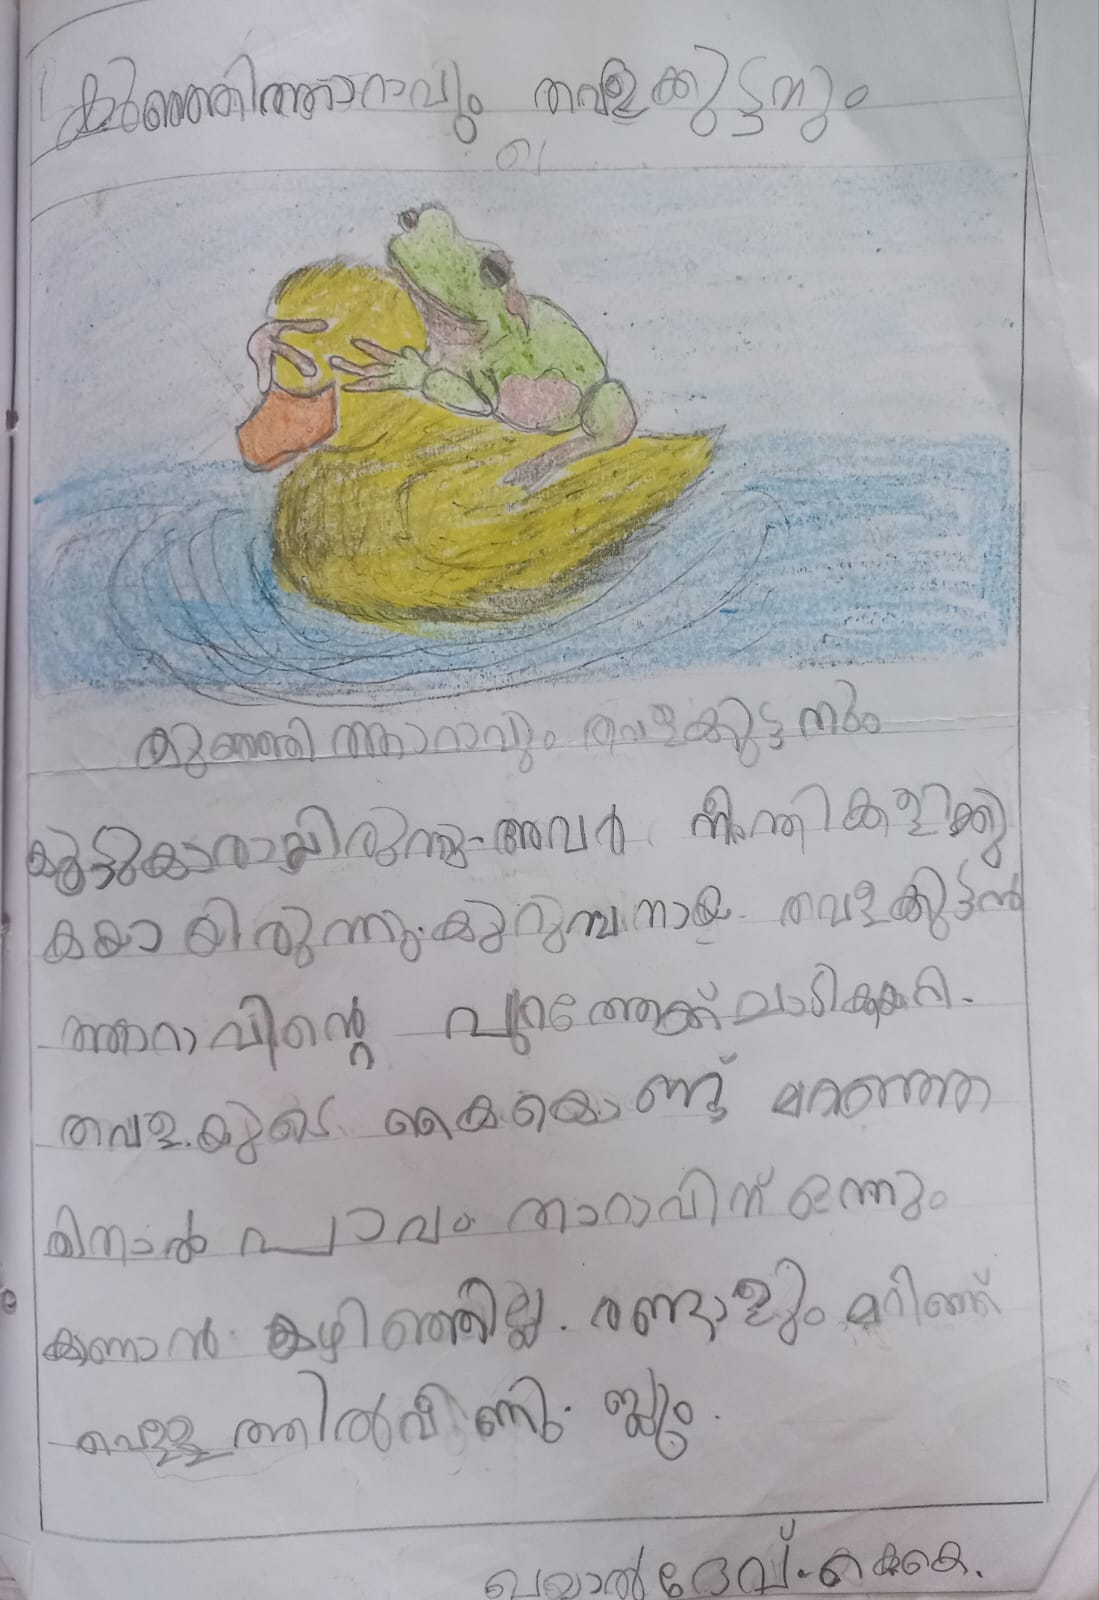 കുഞ്ഞിത്താറാവും തവളക്കുട്ടനും
കുഞ്ഞിത്താറാവും തവളക്കുട്ടനും
കൂട്ടുകാരായിരുന്നു. അവർ നീന്തികളിക്കു
കയായിരുന്നു. കുറുമ്പനായ തവളക്കുട്ടൻ
താറാവിന്റെ പുറത്തേക്ക് ചാടികയറി.
തവളയുടെ കൈകൊണ്ട് മറഞ്ഞ
തിനാൽ പാവം താറാവിന് ഒന്നും
കാണാൻ കഴിഞ്ഞില്ല. രണ്ടാളും മറിഞ്ഞ്
വെള്ളത്തിൽവീണു. ബ്ലും.
ദേവ്. കെ.കെ.